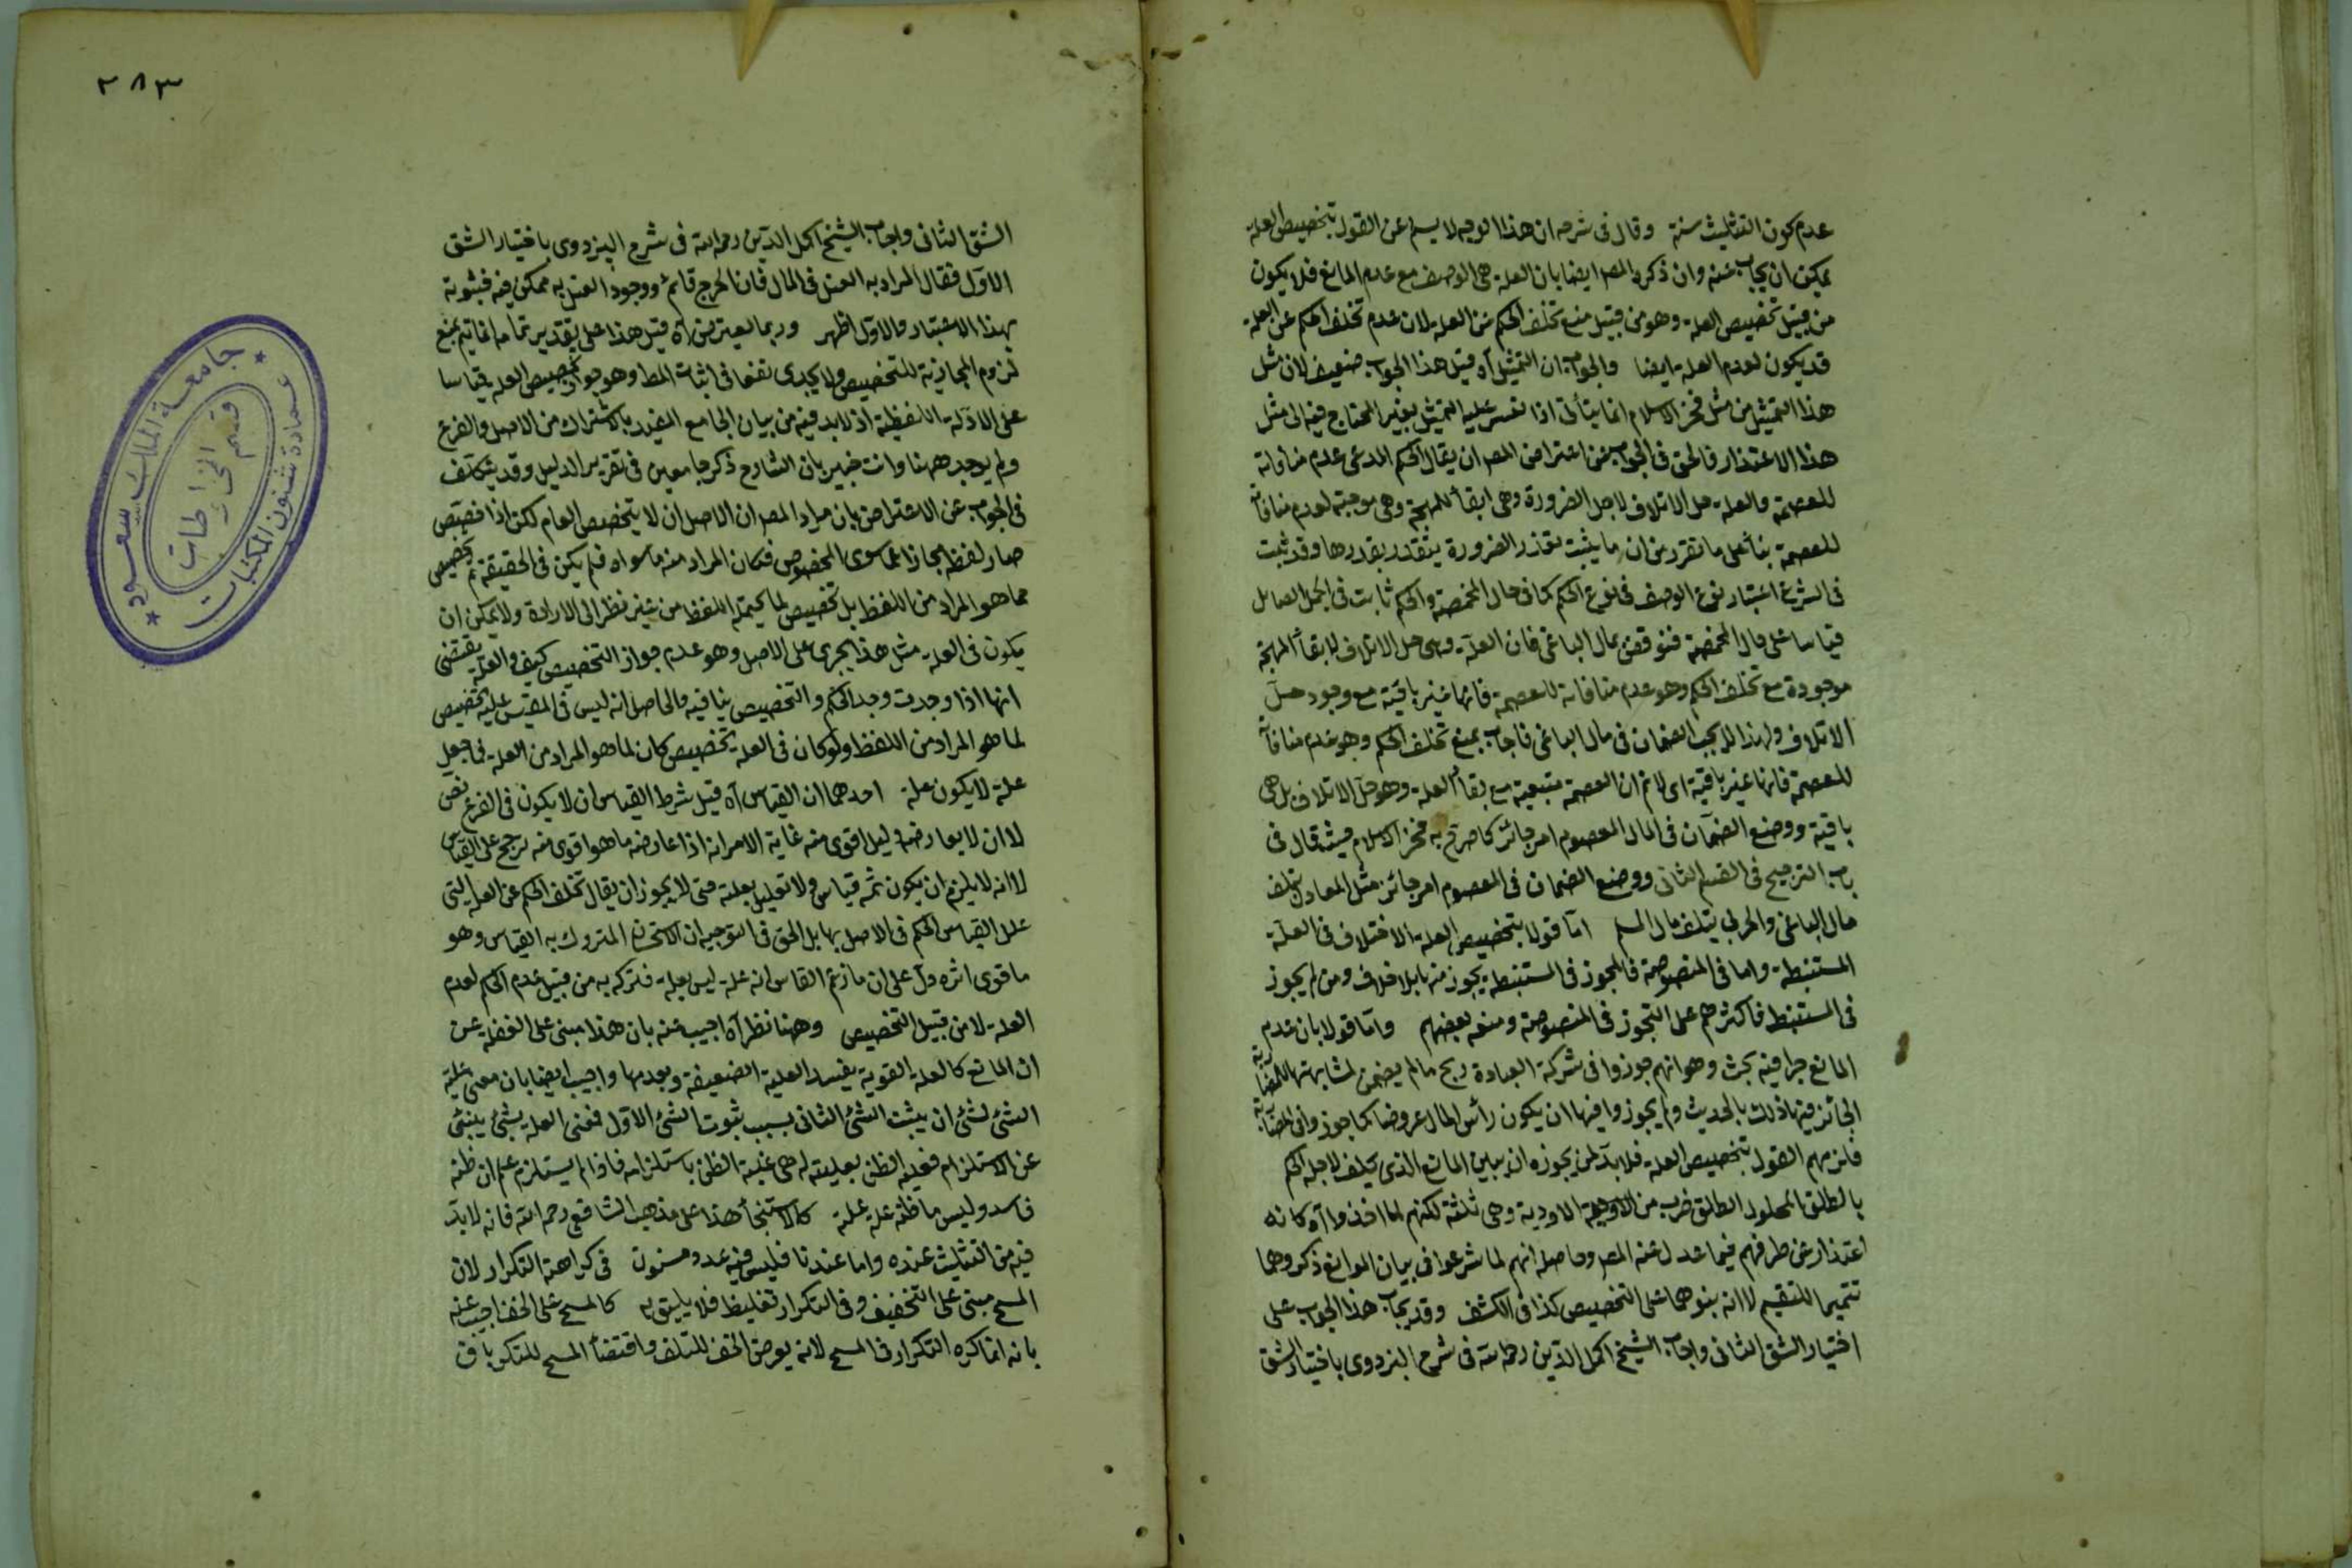 عدم كون التثليث سنة وقال فى شرحه ان هذا الوجه لا يسلم عن القول بتخصيص العلة
يمكن ان يجاب عنه وان ذكره المصر ايضا بان العلة هى الوصف مع عدم المانع فلا يكون
من قبيل تخصيص العلة وهو من قبيل منع تخلف الحكم عن العلة لان عدم تخلف الحكم عن العلة
قد يكون لعدم العلة ايضا والجواب ان التمثيل آه قيل هذا الجواب ضعيف لان مثل
هذا التمثيل من مثل فخر الاسلام انما يتأتى اذا تعسر عليه التمثيل بغير المحتاج فيه الى مثل
هذا الاعتذار فالحق فى الجواب عن اعتراض المصر ان يقال الحكم المدعى عدم منافاته
للعصمة والعلة حل الاتلاف لاجل الضرورة وهى ابقأ للمهجة وهى موجبة لعدم منافاة
للعصمة بنأ على ما تقرر من ان ما يثبت بقدر الضرورة يتقدر بقدرها وقد ثبت
فى الشرع اعتبار نوع الوصف فى نوع الحكم كما فى حال المخمصة والحكم ثابت فى الجمل الصائل
قياسا على مال المخمصة فنوقض بمال الباغى فان العلة وهى حل الاتلاف لابقأ المهجة
موجودة مع تخلف الحكم وهو عدم منافاته للعصمة فانها غير باقية مع وجود حل
الاتلاف ولهذا لا يجب الضمان فى مال الباغى فاجاب بمنع تخلف الحكم وهو عدم منافاة
للعصمة فانها غير باقية اى لا نم ان العصمة منتفية مع بقأ العلة وهو حل الاتلاف بل هى
باقية ووضع الضمان فى المال المعصوم امر جائز كما صرح به فخر الاسلام حيث قال فى
باب الترجيح فى القسم الثانى ووضع الضمان فى المعصوم امر جائز مثل العادل يتلف
مال الباغى والحربى يتلف مال المسلم اما قولا بتخصيص العلة الاختلاف فى العلة
المستنبطة واما فى المنصوصة فالمجوز فى المستنبطة يجوز منها بلا خلاف ومن لم يجوز
فى المستنبط فاكثرهم على التجوز فى المنصوصة ومنعه بعضهم واما قولا بان عدم
المانع جزأ فيه بحث وهو انهم جوزوا فى شركة العبادة ربح ما لم يضمن لمشابهتها المضاربة
الجائز فيها ذلك بالحديث ولم يجوزوا فيها ان يكون رأس المال عروضا كما جوزوا فى المضاربة
فلزمهم القول بتخصيص العلة فلا بد لمن يجوزه ان يبين المانع الذى يخلف لاجله الحكم
بالطلق المحلول الطلق ضرب من الادوية وهى ثلثة لكنهم لما اخذوا آه كانه
اعتذار عن طرفهم فيما عدل عنه المصر وحاصله انهم لما شرعوا فى بيان الموانع ذكروهما
تتميما للتقسيم لا انه بنوهما على التخصيص كذا فى الكشف وقد يجاب هذا الجواب على
اختيار الشق الثانى واجاب الشيخ اكمل الدين رحمه الله فى شرح البزدوى باختيار الشق
٢٨٣
جامعة الملك سعود
قسم المخطوطات
عمادة شئون المكتبات
الشق الثانى واجاب الشيخ اكمل الدين رحمه الله فى شرح البزدوى باختيار الشق
الاول فقال المراد به الغسل فى الحال فان الحرج قائم ووجود الغسل به ممكن فيه فبثوبه
بهذا الاعتبار والاول اظهر وربما يعترض آه قيل هذا على تقدير تمامه انما يتم بمنع
لزوم المجازية للتخصيص ولا يجدى نفعا فى اثبات المط وهو جواز تخصيص العلة قياسا
على الادلة اللفظية اذ لا بد فيه من بيان الجامع المفيد بالاشتراك من الاصل والفرع
ولم يوجد ههنا وانت خبير بان الشارح ذكر جامعين فى تقرير الدليل وقد يتكلف
فى الجواب عن الاعتراض بان مراد المصر ان الاصل ان لا يتخصص العام لكن اذا خصص
صار لفظه مجازا عما سوى المخصوص فكان المراد منه ما سواه فلم يكن فى الحقيقة ثم تخصيص
مما هو المراد من اللفظ بل تخصيص لما يحتمله اللفظ من غير نظر الى الارادة ولا يمكن ان
يكون فى العلة مثل هذا يجرى على الاصل وهو عدم جواز التخصيص كيف والعلة يقتضى
انها اذا وجدت وجد الحكم والتخصيص ينافيه والحاصل انه ليس فى المقيس عليه تخصيص
لما هو المراد من اللفظ ولو كان فى العلة تخصيص كان لما هو المراد من العلة فما جعل
علة لا يكون علة احدهما ان القياس آه قيل شرط القياس ان لا يكون فى الفرع نص
لا ان لا يعارضه دليل اقوى منه غاية الامر انه اذا عارضه ما هو اقوى منه يرجح على القياس
لا انه لا يلزم ان يكون ثمه قياس ولا تعليل بعلة حتى لا يجوز ان يقال تخلف الحكم عن العلة التى
علل القياس الحكم فى الاصل بها بل الحق فى التوجيه ان الاستحسان المتروك به القياس وهو
ما قوى اثره دل على ان ما زعم القاس انه علة ليس بعلة فتركه به من قبيل عدم الحكم لعدم
العلة لا من قبيل التخصيص وههنا نظر آه اجيب عنه بان هذا مبنى على الغفلة عن
ان المانع كالعلة القوية يفسد العلية الضعيفة وبعدمها واجيب ايضا بان معنى علية
الشئ لشئ ان يثبت الشئ الثانى بسبب ثبوت الشئ الاول فمعنى العلة بشئ ينبئ
عن الاستلزام فغلبة الظن بعليته له هى غلبة الظن باستلزامه فاذا لم يستلزم علم ان ظنه
فاسد وليس ما ظنه علة علة كالاستنجأ هذا على مذهب الشافعى رحمه الله فانه لا بد
فيه من التثليث عنده واما عندنا فليس فيه عدد مسنون فى كراهة التكرار لان
المسح مبنى على التخفيف وفى التكرار تغليظ فلا يليق به كالمسح على الخف اجيب عنه
بانه انما كره التكرار فى المسح لانه يعرض الخف للتلف واقتضأ المسح للتكرار باق